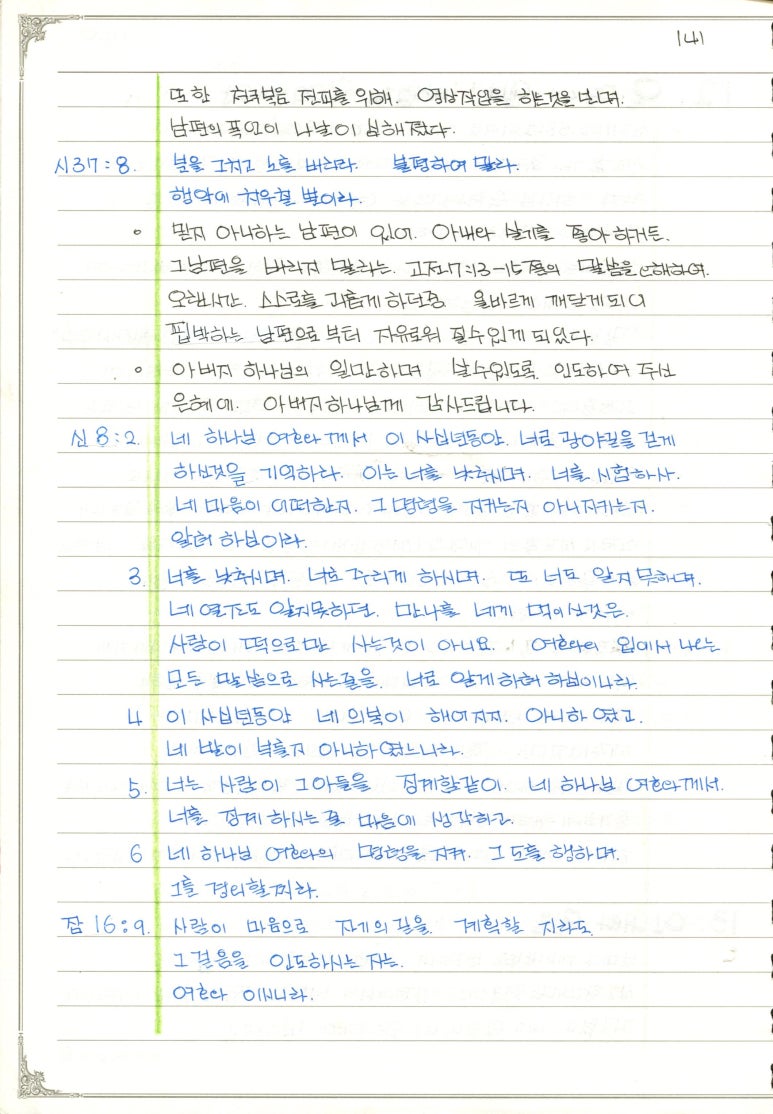 141
또한 천국복음 전파를 위해. 영상작업을 하는것을 보며.
남편의 폭언이 나날이 심해졌다.
시37:8. 분을 그치고 노를 버리라. 불평하여 말라.
행악에 치우칠 뿐이라.
◦ 믿지 아니하는 남편이 있어. 아내와 살기를 좋아하거든.
그남편을 버리지 말라는. 고전7:13-15절의 말씀을 오해하여.
오랜시간. 스스로를 괴롭게 하더중 올바르게 깨닫게되어
핍박하는 남편으로 부터 자유로워 질수있게 되었다.
◦ 아버지 하나님의 일만하며 살수있도록 인도하여 주신
은혜에. 아버지하나님께 감사드립니다.
신 8:2. 네 하나님 여호와께서 이 사십년동안. 너로 광야길을 걷게
하신것을 기억하라. 이는 너를 낮추시며. 너를 시험하사.
네 마음이 어떠한지. 그 명령을 지키는지 아니지키는지.
알려 하심이라.
3. 너를 낮추시며. 너로 주리게 하시며. 또 너도 알지 못하며.
네 열조도 알지못하던. 만나를 네게 먹이신것은.
사람이 떡으로만 사는것이 아니요. 여호와의 입에서 나오는
모든 말씀으로 사는줄을. 너로 알게하려 하심이니라.
4 이 사십년동안 네 의복이 해어지지. 아니하였고.
네 발이 부릍지 아니하였느니라.
5. 너는 사람이 그아들을 징계함같이. 네 하나님 여호와께서.
너를 징계 하시는줄 마음에 생각하고.
6 네 하나님 여호와의 명령을 지켜. 그 도를 행하며.
그를 경외할찌라.
잠 16:9. 사람이 마음으로 자기의 길을 계획할 지라도
그 걸음을 인도하시는 자는.
여호와 이시니라.